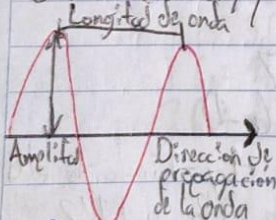 Longitud de onda
Amplitud
Dirección de
propagación
de la onda